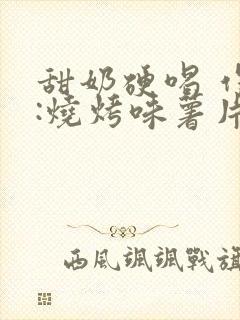 甜奶硬唱
:燒烤味薯片
西風颯颯戰旗